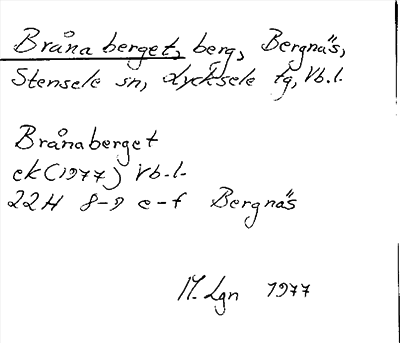 Bråna berget, berg, Bergnäs,
Stensele sn, Lycksele tg, Vb.l.
Brånaberget
ek (1977) Vb.l.
22H 8-9 e-f Bergnäs
M. Lgn 1977